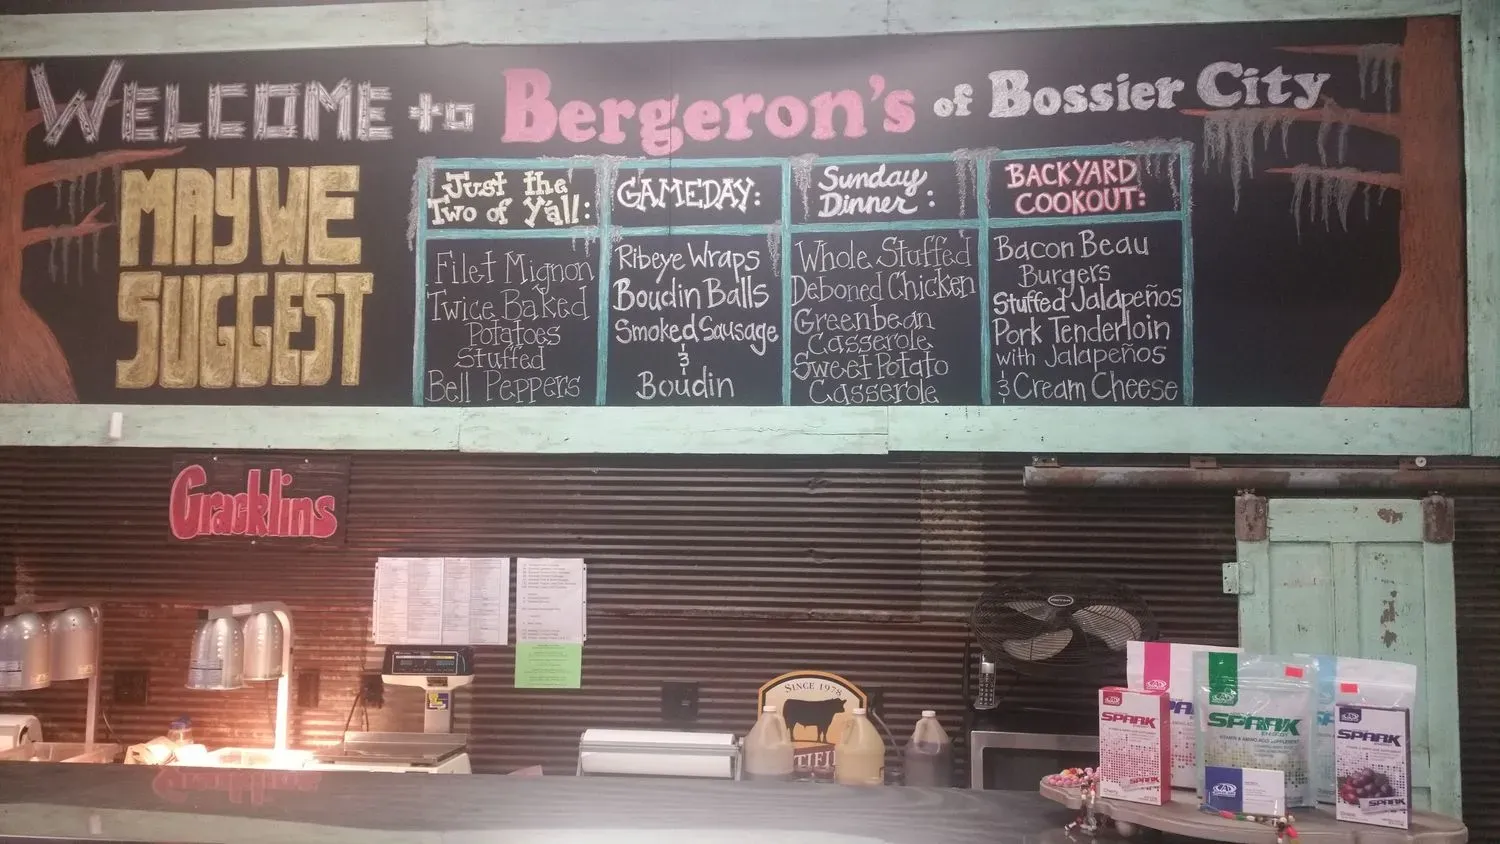 WELCOME to Bergeron's of Bossier City
MAY WE
SUGGEST
Just the
Two of Y'all:
Filet Mignon
Twice Baked
Potatoes
Stuffed
Bell Peppers
GAMEDAY:
Ribeye Wraps
Boudin Balls
Smoked Sausage
&
Boudin
Sunday
Dinner:
Whole Stuffed
Deboned Chicken
Greenbean
Casserole
Sweet Potato
Casserole
BACKYARD
COOKOUT:
Bacon Beau
Burgers
Stuffed Jalapeños
Pork Tenderloin
with Jalapeños
& Cream Cheese
Cracklins
SINCE 1978
SPARK
SPARK
ENERGY
VITAMIN & AMINO ACID SUPPLEMENT
SPARK
SPARK
SPARK